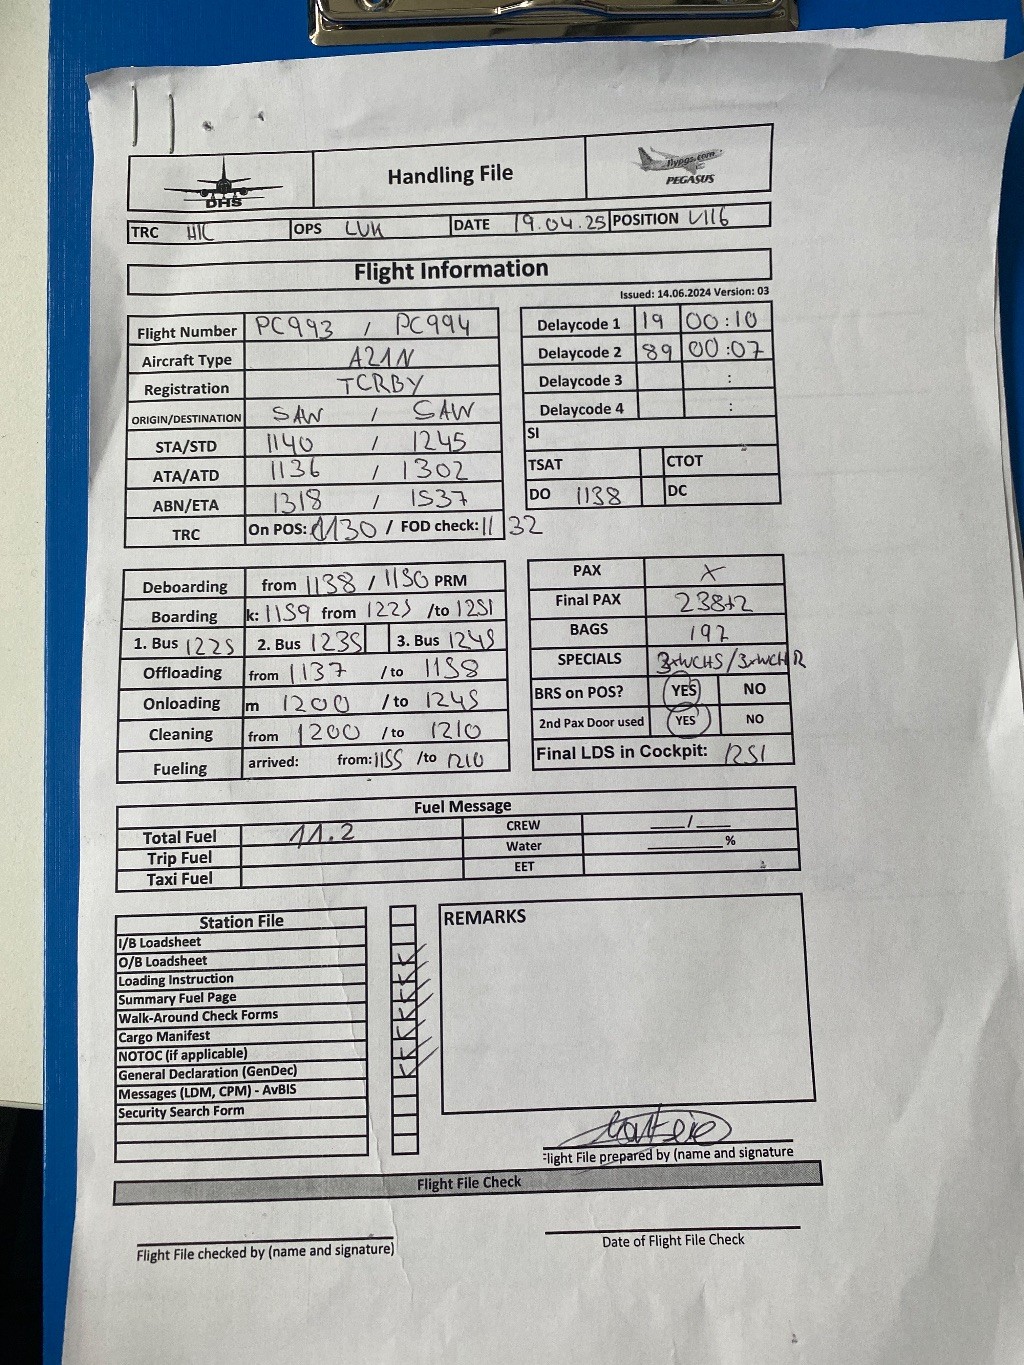 DHS
Handling File
flypgs.com
PEGASUS
TRC HIC OPS LUK DATE 19.04.25 POSITION V116
Flight Information
Issued: 14.06.2024 Version: 03
Flight Number PC993 / PC994
Aircraft Type A21N
Registration TCRBY
ORIGIN/DESTINATION SAW / SAW
STA/STD 1140 / 1245
ATA/ATD 1136 / 1302
ABN/ETA 1318 / 1537
TRC On POS: 1130 / FOD check: 1132
Delaycode 1 19 00:10
Delaycode 2 89 00:07
Delaycode 3 :
Delaycode 4 :
SI
TSAT CTOT
DO 1138 DC
Deboarding from 1138 / 1150 PRM
Boarding k: 1159 from 1225 /to 1251
1. Bus 1225 2. Bus 1235 3. Bus 1245
Offloading from 1137 /to 1158
Onloading m 1200 /to 1245
Cleaning from 1200 /to 1210
Fueling arrived: from: 1155 /to 1210
PAX X
Final PAX 238+2
BAGS 197
SPECIALS 3xWCHS/3xWCHR
BRS on POS? YES NO
2nd Pax Door used YES NO
Final LDS in Cockpit: 1251
Fuel Message
Total Fuel 11.2 CREW __/__
Trip Fuel Water ____%
Taxi Fuel EET
Station File
I/B Loadsheet
O/B Loadsheet
Loading Instruction
Summary Fuel Page
Walk-Around Check Forms
Cargo Manifest
NOTOC (if applicable)
General Declaration (GenDec)
Messages (LDM, CPM) - AvBIS
Security Search Form
REMARKS
Flight File prepared by (name and signature
Flight File Check
Flight File checked by (name and signature)
Date of Flight File Check